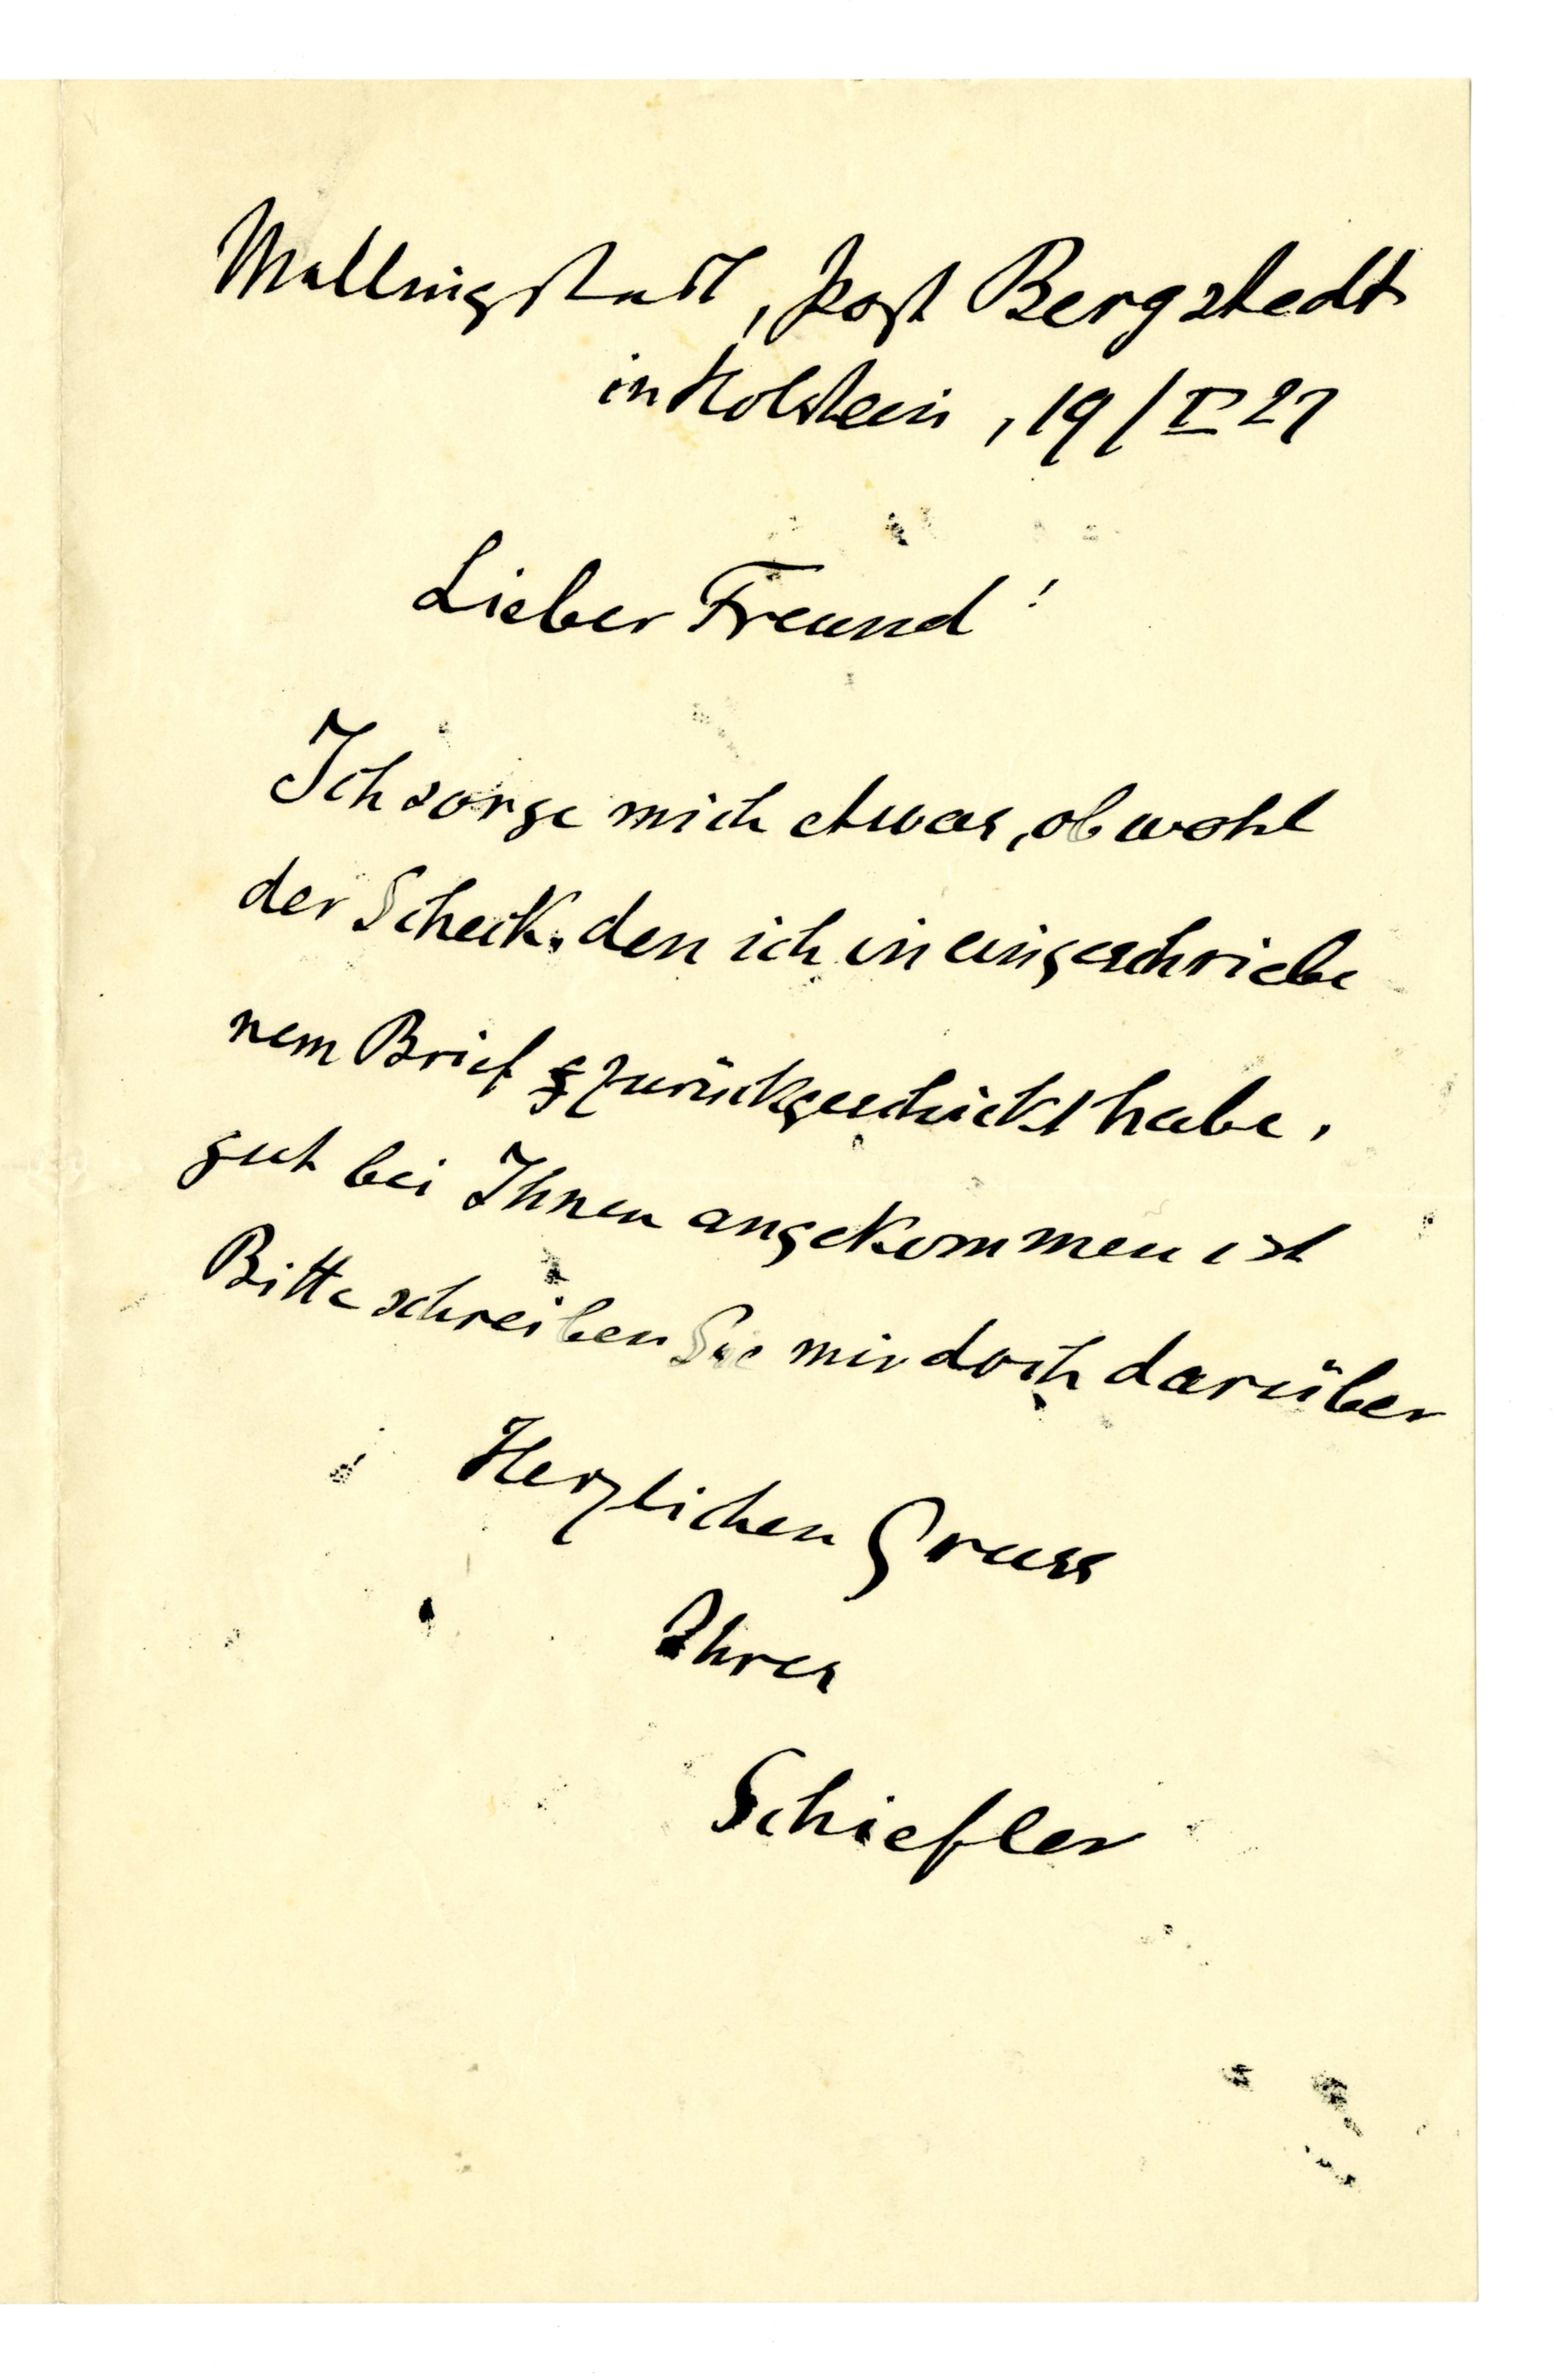 Mellingstedt, Post Bergstedt
in Holstein, 19/I 27
Lieber Freund!
Ich sorge mich etwas, ob wohl
der Scheck, den ich in eingeschriebe
nem Brief zurückgeschickt habe,
gut bei Ihnen angekommen ist
Bitte schreiben Sie mir doch darüber
Herzlichen Gruss
Ihres
Schiefler